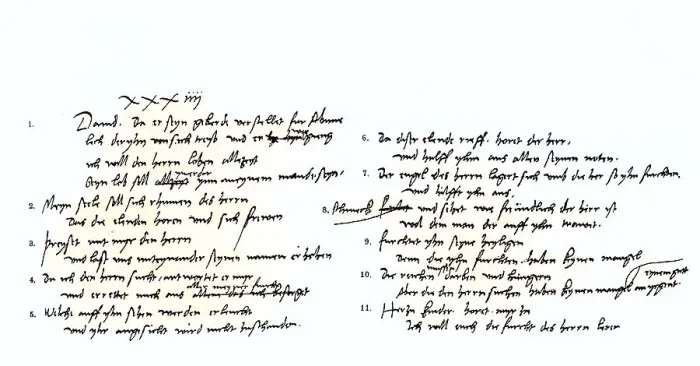 XXXiiii
1. Dauid. Da er seyn geberde verstellet fur Abime
lech der yhn von sich treyb und er weg gieng
Ich will den herrn loben alle zeyt
Seyn lob soll ymer ynn meynem munde seyn.
2. Meyn seele soll sich rhumen des herrn
Das die elenden horen und sich frewen
3. Preyset mit myr den herrn
und last uns miteynander seynen namen erheben
4. Da ich den herrn sucht, antwortet er myr
und errettet mich aus aller meyner furcht
5. Wilche auff yhn sehen werden erleucht
und yhr angesicht wird nicht zuschanden.
6. Da diser elende rieff. horet der herr,
und halff yhm aus allen seynen noten.
7. Der engel des herrn lagert sich umb die her so yhn furchten.
und hilfft yhn aus.
8. Schmeckt und sehet wie freundlich der herr ist
wol dem man der auff yhn trawet.
9. Furchtet yhn seyne heyligen
denn die yhn furchten. haben keynen mangel
10. Die reychen mussen darben und hungern
Aber die den herrn suchen haben keynen mangel
11. Herzu kinder. horet myr zu
Ich will euch die furcht des herrn leren